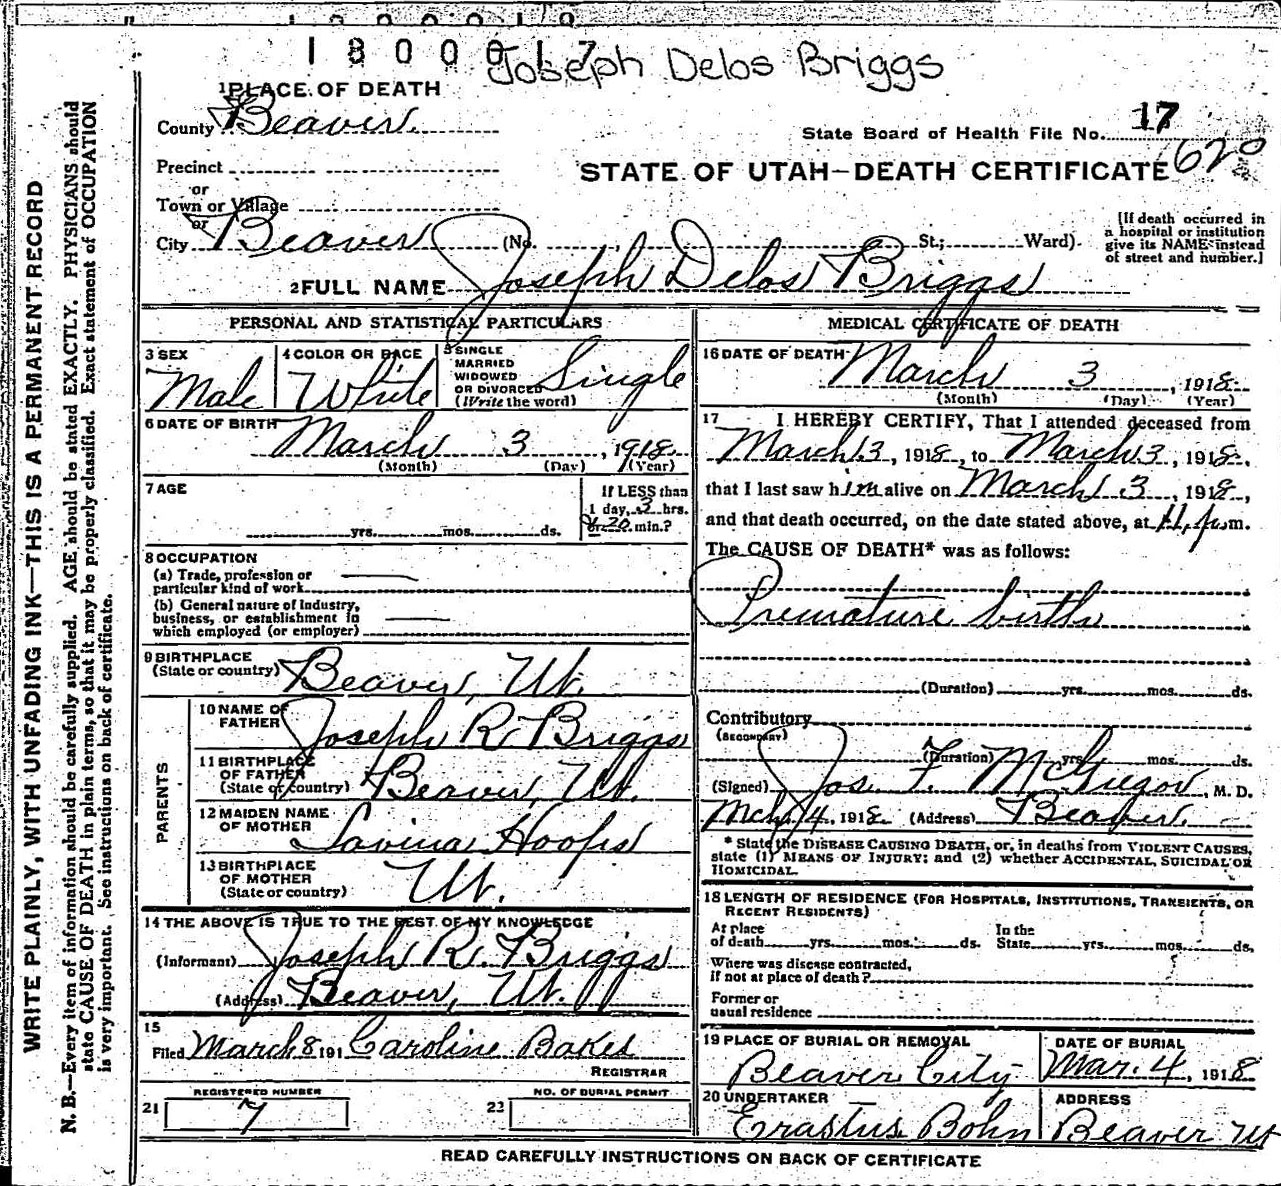 1800017
Joseph Delos Briggs
1 PLACE OF DEATH
County Beaver
State Board of Health File No. 17
Precinct
STATE OF UTAH—DEATH CERTIFICATE 620
or
Town or Village
or
City Beaver (No. St.; Ward)
[If death occurred in
a hospital or institution
give its NAME instead
of street and number.]
2 FULL NAME Joseph Delos Briggs
PERSONAL AND STATISTICAL PARTICULARS
3 SEX
Male
4 COLOR OR RACE
White
5 SINGLE
MARRIED
WIDOWED
OR DIVORCED
(Write the word)
Single
6 DATE OF BIRTH
March 3, 1918
(Month) (Day) (Year)
7 AGE
yrs. mos. ds.
If LESS than
1 day, 2 hrs.
or 20 min.?
8 OCCUPATION
(a) Trade, profession or
particular kind of work
(b) General nature of Industry,
business, or establishment in
which employed (or employer)
9 BIRTHPLACE
(State or country) Beaver, Ut.
PARENTS
10 NAME OF
FATHER Joseph R Briggs
11 BIRTHPLACE
OF FATHER
(State or country) Beaver, Ut.
12 MAIDEN NAME
OF MOTHER Lavina Hoops
13 BIRTHPLACE
OF MOTHER
(State or country) Ut.
14 THE ABOVE IS TRUE TO THE BEST OF MY KNOWLEDGE
(Informant) Joseph R. Briggs
(Address) Beaver, Ut.
15
Filed March 8 191 Caroline Bakes
REGISTRAR
REGISTERED NUMBER
21 7
NO. OF BURIAL PERMIT
22
MEDICAL CERTIFICATE OF DEATH
16 DATE OF DEATH
March 3, 1918
(Month) (Day) (Year)
17 I HEREBY CERTIFY, That I attended deceased from
March 3, 1918, to March 3, 1918,
that I last saw him alive on March 3, 1918,
and that death occurred, on the date stated above, at 11, p.m.
The CAUSE OF DEATH* was as follows:
Premature birth
(Duration) yrs. mos. ds.
Contributory
(SECONDARY)
(Duration) yrs. mos. ds.
(Signed) Jos. F. McGregor, M. D.
Mch 4, 1918 (Address) Beaver.
* State the DISEASE CAUSING DEATH, or, in deaths from VIOLENT CAUSES,
state (1) MEANS OF INJURY; and (2) whether ACCIDENTAL, SUICIDAL OR
HOMICIDAL.
18 LENGTH OF RESIDENCE (FOR HOSPITALS, INSTITUTIONS, TRANSIENTS, OR
RECENT RESIDENTS)
At place
of death yrs. mos. ds.
In the
State yrs. mos. ds.
Where was disease contracted,
if not at place of death?
Former or
usual residence
19 PLACE OF BURIAL OR REMOVAL
Beaver City
DATE OF BURIAL
Mar. 4, 1918
20 UNDERTAKER
Erastus Bohn
ADDRESS
Beaver Ut
READ CAREFULLY INSTRUCTIONS ON BACK OF CERTIFICATE
WRITE PLAINLY, WITH UNFADING INK—THIS IS A PERMANENT RECORD
N. B.—Every item of information should be carefully supplied. AGE should be stated EXACTLY. PHYSICIANS should
state CAUSE OF DEATH in plain terms, so that it may be properly classified. Exact statement of OCCUPATION
is very important. See instructions on back of certificate.